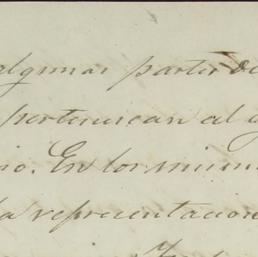 algunas partes de
pertenescan al
io. En los mismo
la representacion